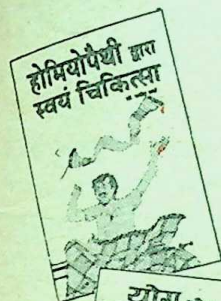 होमियोपैथी द्वारा
स्वयं चिकित्सा
योग